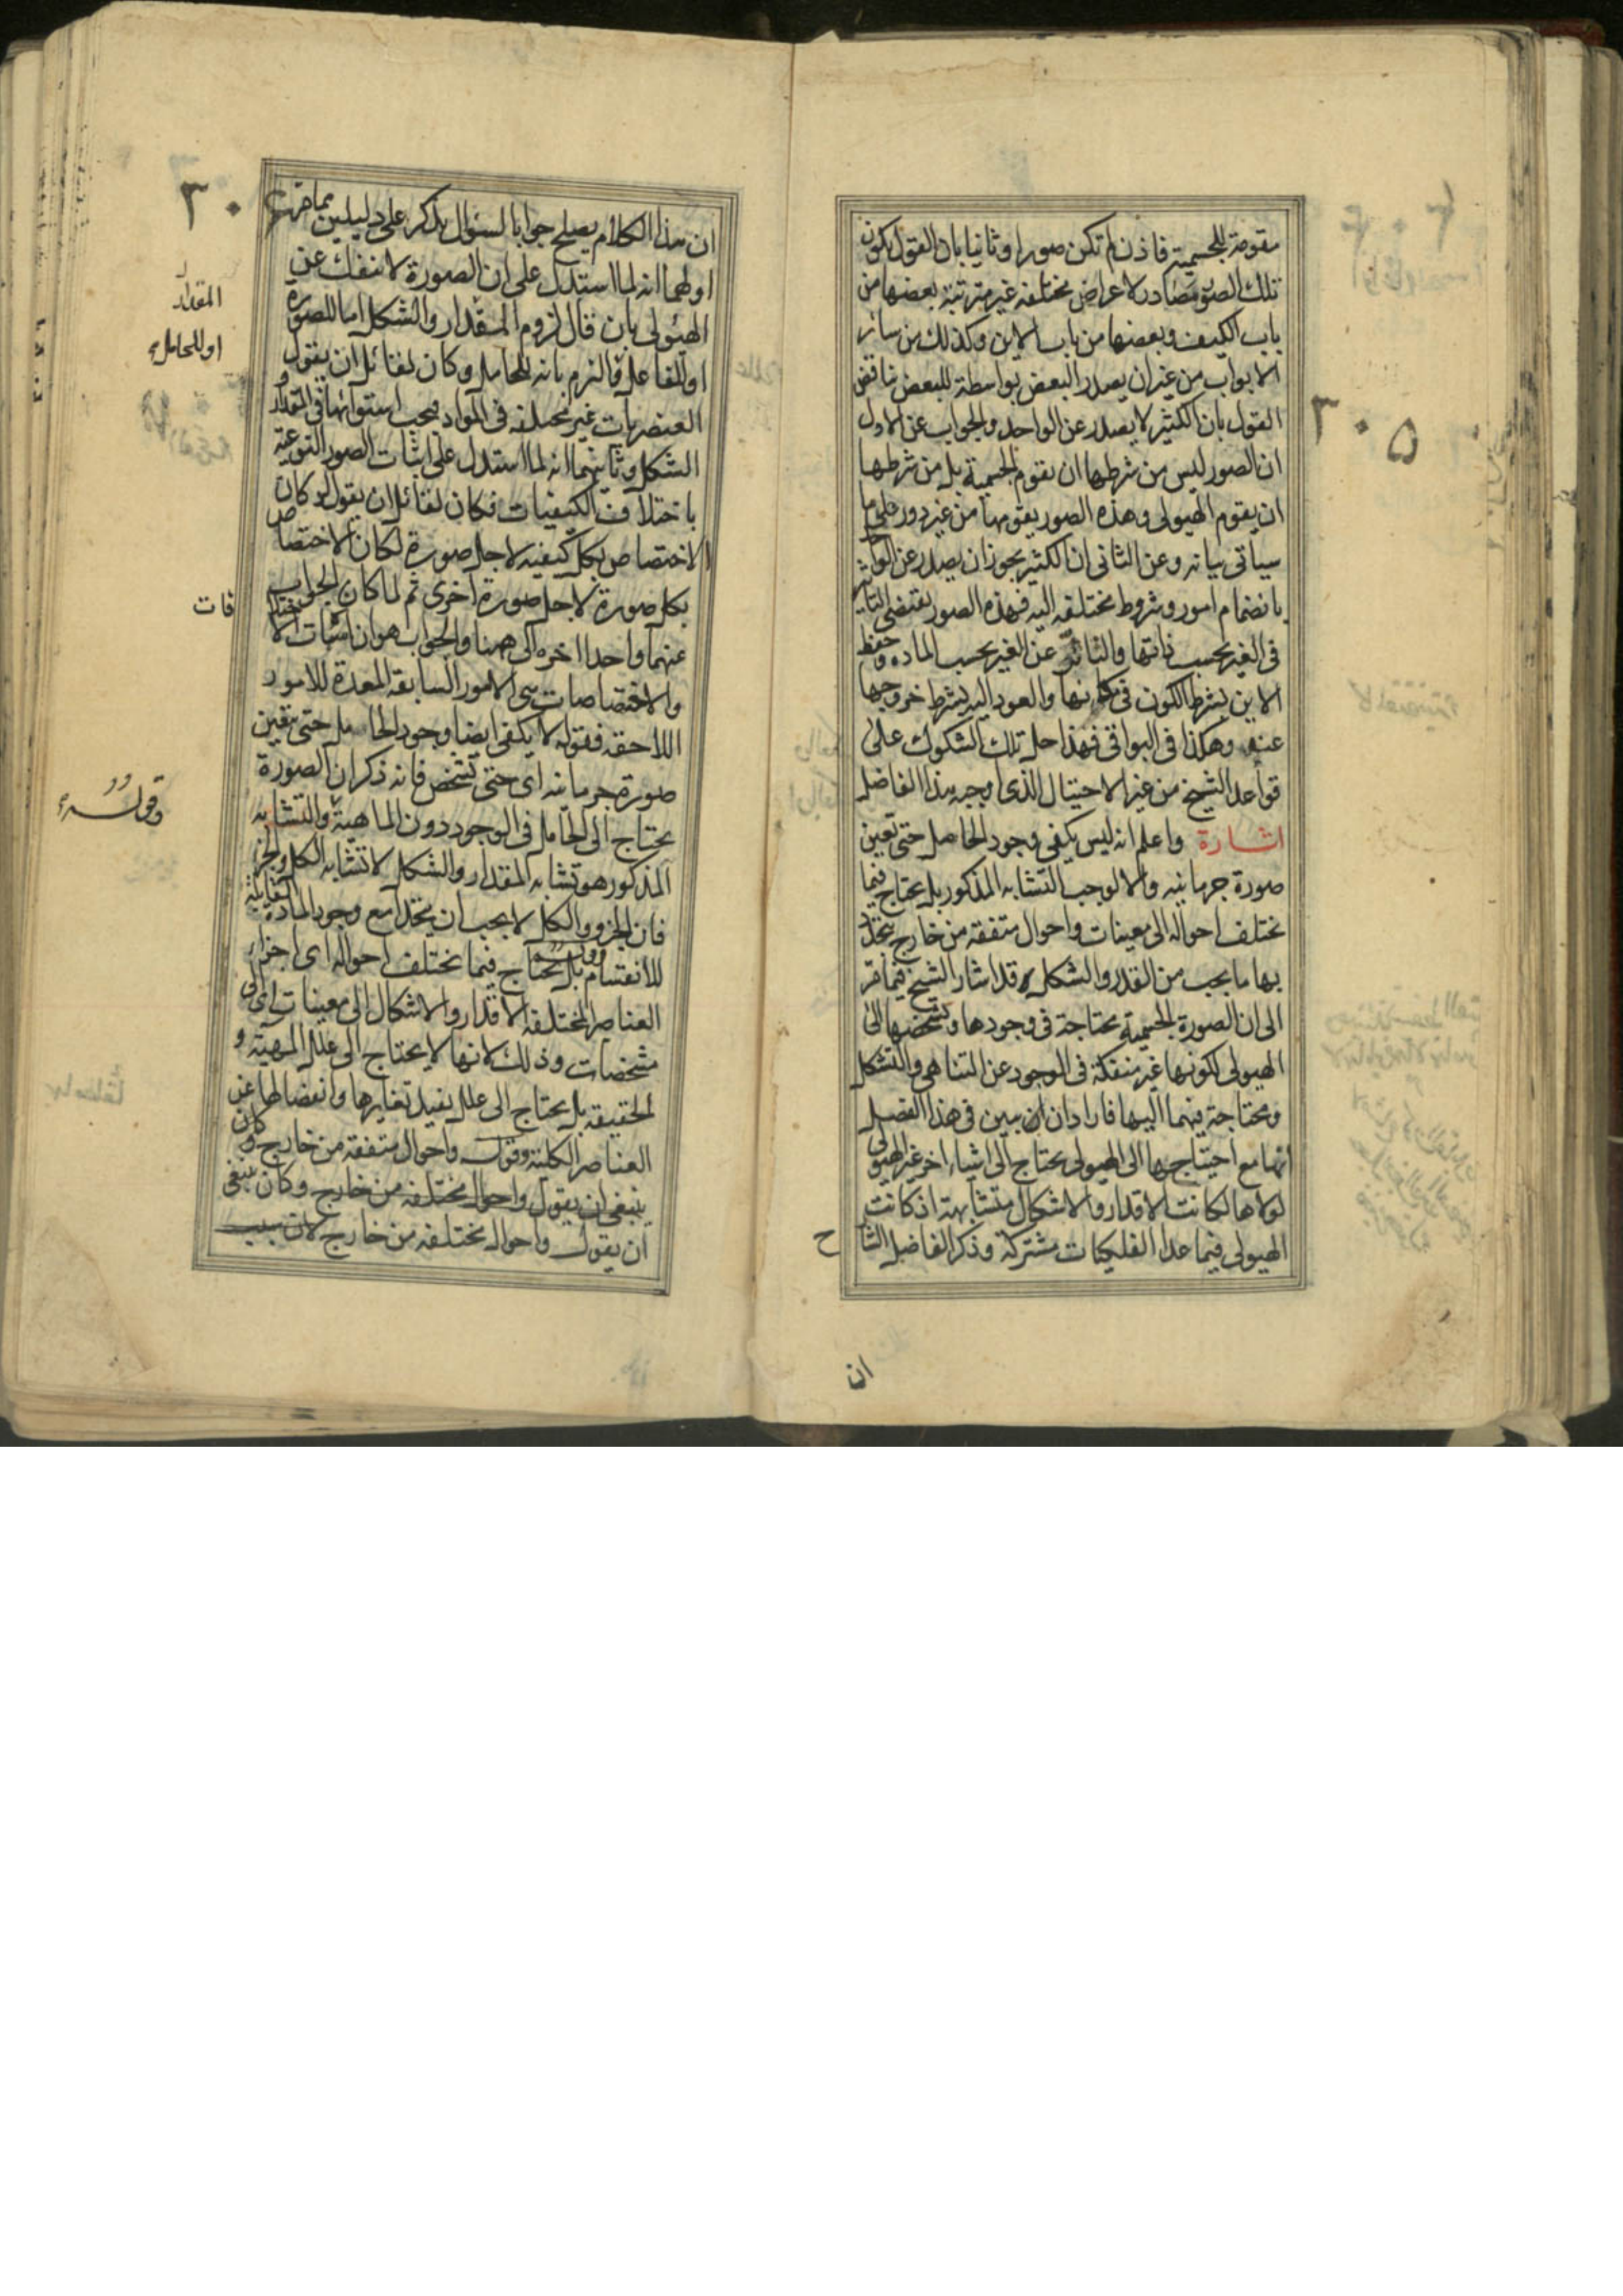 مقومة للجسمية فاذن لم تكن صورا وثانيا بان القول بكون
تلك الصور مصادر لاعراض مختلفة غير مترتبة بعضها من
باب الكيف وبعضها من باب الاين وكذلك من سائر
الابواب من غير ان يصدر البعض بواسطة للبعض يناقض
القول بان الكثير لا يصدر عن الواحد والجواب عن الاول
ان الصور ليس من شرطها ان يقوم الجسمية بل من شرطها
ان يقوم الهيولى وهذه الصور يقومها من غير دور على ما
سياتى بيانه وعن الثانى ان الكثير يجوز ان يصدر عن الواحد
بانضمام امور وشروط مختلفه اليه فهذه الصور يقتضى التاثير
فى الغير بحسب ذاتها والتاثر عن الغير بحسب الماده وحفظ
الاين بشرط الكون فى مكانها والعود اليه بشرط خروجها
عنه وهكذا فى البواقى فهذا حل تلك الشكوك على
قواعد الشيخ من غير الاحتيال الذى اوجبه هذا الفاضل
اشارة واعلم انه ليس يكفى وجود الحامل حتى تعين
صورة جرمانيه والا لوجب التشابه المذكور بل يحتاج فيما
تختلف احواله الى معينات واحوال متفقه من خارج يتحدد
بها ما يجب من القدر والشكل قد اشار الشيخ فيما مر
الى ان الصورة الجسمية محتاجة فى وجودها وتشخصها الى
الهيولى لكونها غير منفكة فى الوجود عن التناهى والتشكل
ومحتاجة فيهما اليها فاراد ان يبين فى هذا الفصل
انها مع احتياجها الى الهيولى يحتاج الى اشياء اخر غير الهيولى
لولاها لكانت الاقدار والاشكال متشابهة اذ كانت
الهيولى فيما عدا الفلكيات مشتركة وذكر الفاضل الشا
ح
ان
٣٠٥
ان هذا الكلام يصلح جوابا لسؤال يذكر على دليلين مما مر
اولهما انه لما استدل على ان الصورة لا تنفك عن
الهيولى بان قال لزوم المقدار والشكل اما للصورة
او للفاعل فالزم بانه للحامل وكان لقائل ان يقول
العنصريات غير مختلفه فى المواد فيجب استوائها فى المقدار و
الشكل وثانيهما انه لما استدل على اثبات الصور النوعية
باختلاف الكيفيات فكان لقائل ان يقول لو كان
الاختصاص بكل كيفيه لاجل صورة لكان الاختصاص
بكل صورة لاجل صورة اخرى ثم لما كان الجواب
عنهما واحدا اخره الى ههنا والجواب هو ان اثبات الاختلا
فات
والاختصاصات هى الامور السابقه المعدة للامور
اللاحقه فقوله لا يكفى ايضا وجود الحامل حتى يتعين
صورة جرمانيه اى حتى تشخص فانه ذكر ان الصورة
يحتاج الى الحامل فى الوجود دون الماهية والتشابه
المذكور هو تشابه المقدار والشكل لا تشابه الكل والجزء
فان الجزو والكل لا يجب ان يتحدا مع وجود المادة القابلة
للانقسام وقوله بل يحتاج فيما تختلف احواله اى اجزاء
العناصر المختلفه الاقدار والاشكال الى معينات اى الى
مشخصات وذلك لانها لا يحتاج الى علل المهية و
الحقيقه بل يحتاج الى علل يفيد تغايرها وانفصالها عن
العناصر الكلية وقوله واحوال متفقه من خارج وكان
ينبغى ان يقول واحوال مختلفه من خارج وكان ينبغى
ان يقول واحواله مختلفه من خارج لان سبب
٣٠
المقدار
او للحامل
وقوله